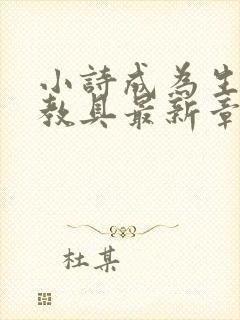 小詩成為生
教具最新章
杜某